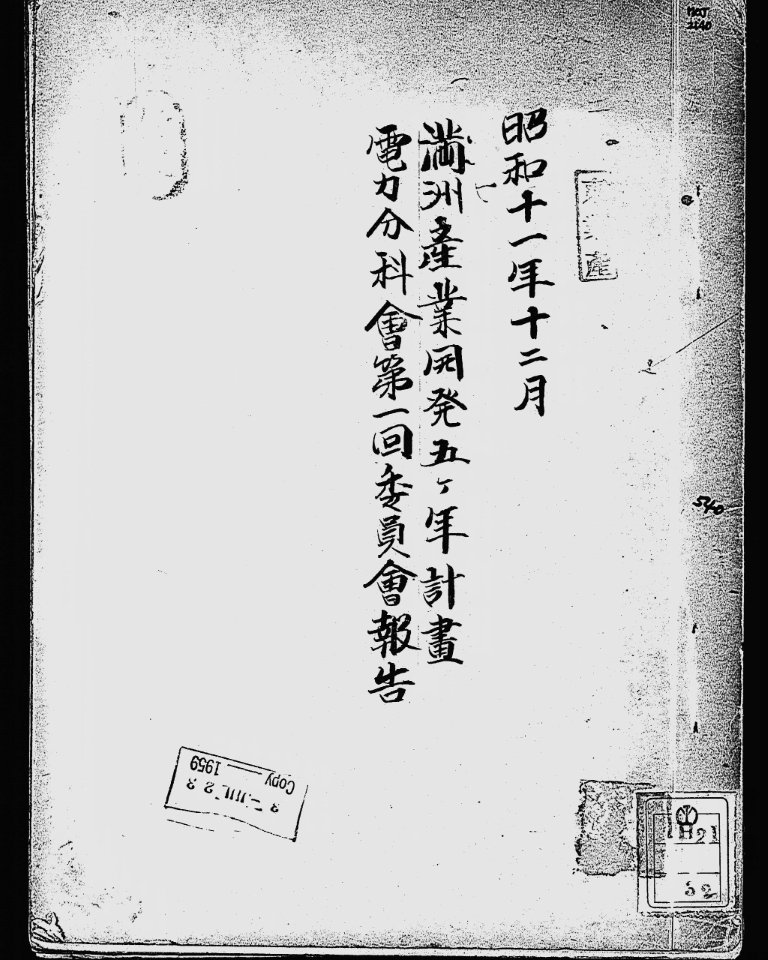 昭和十一年十二月
満洲産業開発五ヶ年計畫
電力分科會第一回委員會報告
産
540
Copy
1959
52